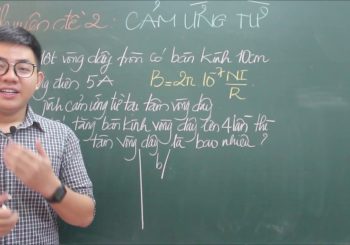 Chuyên đề 2: CẢM ỨNG TỪ
Một vòng dây tròn có bán kính 10cm
điện 5A B=2π 10⁻⁷ NI/R
cảm ứng từ tại tâm vòng dây
tăng bán kính vòng dây lên 4 lần thì
tâm vòng dây là bao nhiêu?
b/